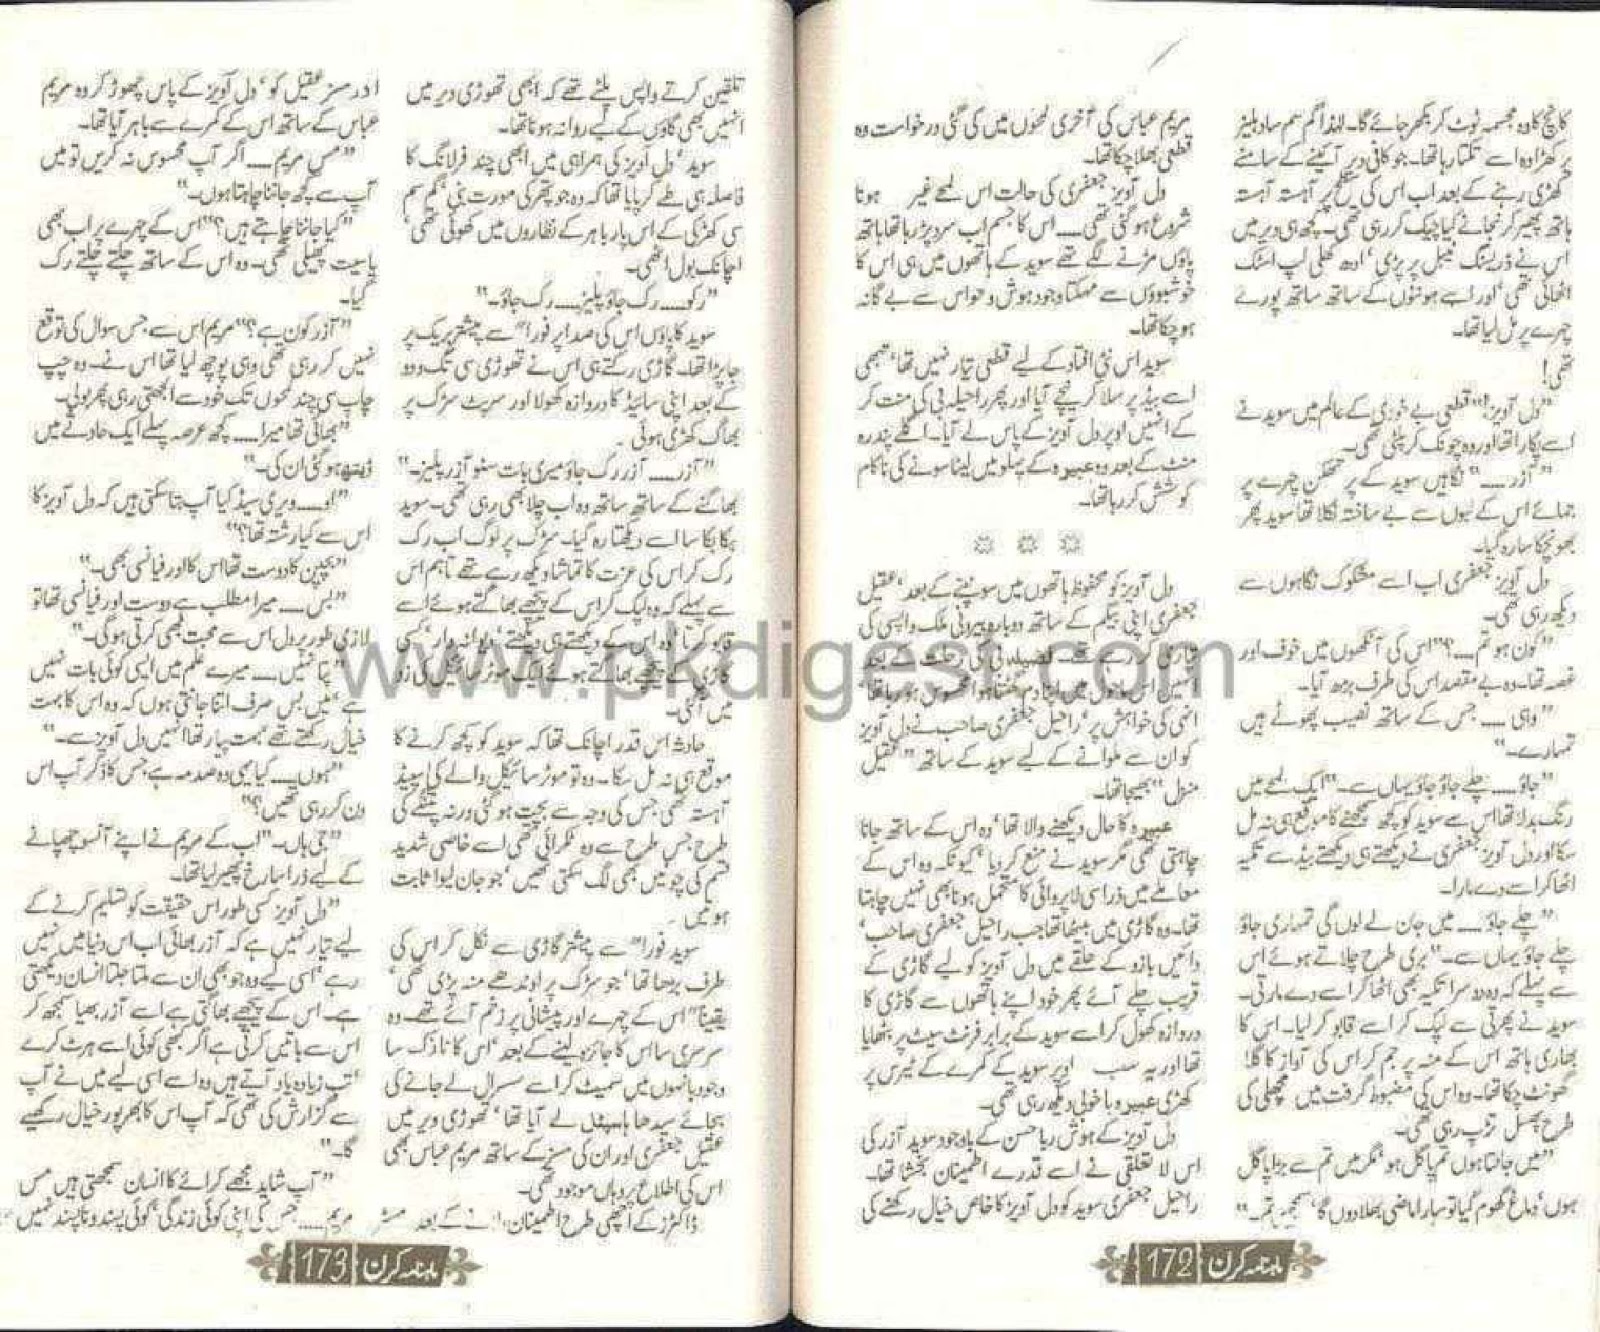 کانچ کا وہ مجسمہ ٹوٹ کر بکھر جائے گا۔ لہٰذا گم سم سا دہلیز
پر کھڑا وہ اسے تکتا رہا تھا۔ جو کافی دیر آئینے کے سامنے
کھڑی رہنے کے بعد اب اس کی سطح پر آہستہ آہستہ
ہاتھ پھیر کر نجانے کیا چیک کر رہی تھی۔ کچھ ہی دیر میں
اس نے ڈریسنگ ٹیبل پر پڑی، ادھ کھلی لپ اسٹک
اٹھائی تھی، اور اسے ہونٹوں کے ساتھ ساتھ پورے
چہرے پر مل لیا تھا۔
تھی!
"دل آویز!" قطعی بے خودی کے عالم میں سوید نے
اسے پکارا تھا اور وہ چونک کر پلٹی تھی۔
"آذر....." نگاہیں سوید کے پر تھکن چہرے پر
جمائے اس کے لبوں سے بے ساختہ نکلا تھا سوید پھر
بھونچکا سا رہ گیا۔
دل آویز جعفری اب اسے مشکوک نگاہوں سے
دیکھ رہی تھی۔
"کون ہو تم....؟" اس کی آنکھوں میں خوف اور
غصہ تھا۔ وہ بے مقصد اس کی طرف بڑھ آیا۔
"وہی .... جس کے ساتھ نصیب پھوٹے ہیں
تمہارے۔"
"جاؤ..... چلے جاؤ جاؤ یہاں سے۔" ایک لمحے میں
رنگ بدلا تھا اس سے سوید کو کچھ سمجھنے کا موقع ہی نہ مل
سکا اور دل آویز جعفری نے دیکھتے ہی دیکھتے بیڈ سے تکیہ
اٹھا کر اسے دے مارا۔
"چلے جاؤ.... میں جان لے لوں گی تمہاری جاؤ
چلے جاؤ یہاں سے۔" بری طرح چلاتے ہوئے اس
سے پہلے کہ وہ دوسرا تکیہ بھی اٹھا کر اسے دے مارتی۔
سوید نے پھرتی سے لپک کر اسے قابو کر لیا۔ اس کا
بھاری ہاتھ اس کے منہ پر جم کر اس کی آواز کا گلا
گھونٹ چکا تھا۔ وہ اس کی مضبوط گرفت میں مچھلی کی
طرح پھسل تڑپ رہی تھی۔
"میں جانتا ہوں تم پاگل ہو، مگر میں تم سے بڑا پاگل
ہوں، دماغ گھوم گیا تو سارا ماضی بھلا دوں گا، سمجھیں تم۔"
مریم عباس کی آخری لمحوں میں کی گئی درخواست وہ
قطعی بھلا چکا تھا۔
دل آویز جعفری کی حالت اس لمحے غیر ہونا
شروع ہو گئی تھی.... اس کا جسم اب سرد پڑ رہا تھا ہاتھ
پاؤں مڑنے لگے تھے سوید کے ہاتھوں میں ہی اس کا
خوشبوؤں سے مہکتا وجود ہوش و حواس سے بے گانہ
ہو چکا تھا۔
سوید اس نئی افتاد کے لیے قطعی تیار نہیں تھا، تبھی
اسے بیڈ پر سلا کر نیچے آیا اور پھر راحیلہ بی کی منت کر
کے انہیں اوپر دل آویز کے پاس لے آیا۔ اگلے پندرہ
منٹ کے بعد وہ عبیرہ کے پہلو میں لیٹا سونے کی ناکام
کوشش کر رہا تھا۔
دل آویز کو محفوظ ہاتھوں میں سونپنے کے بعد، عقیل
جعفری اپنی بیگم کے ساتھ دوبارہ بیرونی ملک واپسی کی
تیاری کر رہے تھے۔ فضیلہ بی کی رحلت کے بعد
انہیں اس ماحول میں اپنا دم گھٹتا ہوا محسوس ہو رہا تھا،
انہی کی خواہش پر، راحیل جعفری صاحب نے دل آویز
کو ان سے ملوانے کے لیے سوید کے ساتھ "عقیل
منزل" بھیجا تھا۔
عبیرہ کا حال دیکھنے والا تھا، وہ اس کے ساتھ جانا
چاہتی تھی مگر سوید نے منع کر دیا، کیونکہ وہ اس کے
معاملے میں ذرا سی لاپروائی کا متحمل ہونا بھی نہیں چاہتا
تھا۔ وہ گاڑی میں بیٹھا تھا جب راحیل جعفری صاحب،
دائیں بازو کے حلقے میں دل آویز کو لیے گاڑی کے
قریب چلے آئے پھر خود اپنے ہاتھوں سے گاڑی کا
دروازہ کھول کر اسے سوید کے برابر فرنٹ سیٹ پر بٹھایا
تھا اور یہ سب اوپر سوید کے کمرے کے ٹیرس پر
کھڑی عبیرہ بخوبی دیکھ رہی تھی۔
دل آویز کے ہوش ربا حسن کے باوجود سوید آذر کی
اس لاتعلقی نے اسے قدرے اطمینان بخشا تھا۔
راحیل جعفری سوید کو دل آویز کا خاص خیال رکھنے کی
ماہنامہ کرن 172
تلقین کرتے واپس پلٹے تھے کہ ابھی تھوڑی دیر میں
انہیں بھی گاؤں کے لیے روانہ ہونا تھا۔
سوید، دل آویز کی ہمراہی میں ابھی چند فرلانگ کا
فاصلہ ہی طے کر پایا تھا کہ وہ جو پتھر کی مورت بنی، گم سم
سی کھڑکی کے اس پار باہر کے نظاروں میں کھوئی تھی،
اچانک بول اٹھی۔
"رکو.... رک جاؤ پلیز.... رک جاؤ۔"
سوید کا پاؤں اس کی صدا پر فوراً سے پیشتر بریک پر
جا پڑا تھا۔ گاڑی رکتے ہی اس نے تھوڑی سی تک و دو
کے بعد اپنی سائیڈ کا دروازہ کھولا اور سرپٹ سڑک پر
بھاگ کھڑی ہوئی۔
"آذر.... آذر رک جاؤ میری بات سنو آذر پلیز۔"
بھاگنے کے ساتھ ساتھ وہ اب چلا بھی رہی تھی۔ سوید
ہکا بکا سا اسے دیکھتا رہ گیا۔ سڑک پر لوگ اب رک
رک کر اس کی عزت کا تماشا دیکھ رہے تھے تاہم اس
سے پہلے کہ وہ لپک کر اس کے پیچھے بھاگتے ہوئے اسے
قابو کرتا، وہ اس کے دیکھتے ہی دیکھتے، دیوانہ وار، کسی
گاڑی کے پیچھے بھاگتے ہوئے ایک موٹر سائیکل کی زد
میں آ گئی۔
حادثہ اس قدر اچانک تھا کہ سوید کو کچھ کرنے کا
موقع ہی نہ مل سکا۔ وہ تو موٹر سائیکل والے کی اسپیڈ
آہستہ تھی جس کی وجہ سے بچت ہو گئی ورنہ پتنگے کی
طرح جس طرح سے وہ ٹکرائی تھی اسے خاصی شدید
قسم کی چوٹیں بھی لگ سکتی تھیں، جو جان لیوا ثابت
ہوتیں۔
سوید فوراً سے پیشتر گاڑی سے نکل کر اس کی
طرف بڑھا تھا، جو سڑک پر اوندھے منہ پڑی تھی،
یقیناً اس کے چہرے اور پیشانی پر زخم آئے تھے۔ وہ
سرسری سا اس کا جائزہ لینے کے بعد، اس کا نازک سا
وجود بانہوں میں سمیٹ کر اسے سسرال لے جانے کی
بجائے سیدھا ہاسپٹل لے آیا تھا، تھوڑی دیر میں
عقیل جعفری اور ان کی مسز کے ساتھ مریم عباس بھی
اس کی اطلاع پر وہاں موجود تھی۔
ڈاکٹرز کے اچھی طرح اطمینان کے بعد مسٹر
اور مسز عقیل کو، دل آویز کے پاس چھوڑ کر وہ مریم
عباس کے ساتھ اس کے کمرے سے باہر آیا تھا۔
"مس مریم.... اگر آپ محسوس نہ کریں تو میں
آپ سے کچھ جاننا چاہتا ہوں۔"
"کیا جاننا چاہتے ہیں؟" اس کے چہرے پر اب بھی
یاسیت پھیلی تھی۔ وہ اس کے ساتھ چلتے چلتے رک
گیا۔
"آذر کون ہے؟" مریم اس سے، جس سوال کی توقع
نہیں کر رہی تھی وہی پوچھ لیا تھا اس نے۔ وہ چپ
چاپ سی چند لمحوں تک خود سے الجھتی رہی پھر بولی۔
"بھائی تھا میرا.... کچھ عرصہ پہلے ایک حادثے میں
ڈیتھ ہو گئی ان کی۔"
"او.... ویری سیڈ کیا آپ بتا سکتی ہیں کہ دل آویز کا
اس سے کیا رشتہ تھا؟"
"بچپن کا دوست تھا اس کا اور فیانسی بھی۔"
"بس.... میرا مطلب ہے دوست اور فیانسی تھا تو
لازمی طور پر دل اس سے محبت بھی کرتی ہو گی۔"
"پتا نہیں.... میرے علم میں ایسی کوئی بات نہیں
ہے، میں بس صرف اتنا جانتی ہوں کہ وہ اس کا بہت
خیال رکھتے تھے بہت پیار تھا انہیں دل آویز سے۔"
"ہوں.... کیا یہی وہ صدمہ ہے، جس کا ذکر آپ اس
دن کر رہی تھیں؟"
"جی ہاں۔" اب کے مریم نے اپنے آنسو چھپانے
کے لیے ذرا سا رخ پھیر لیا تھا۔
"دل آویز کسی طور اس حقیقت کو تسلیم کرنے کے
لیے تیار نہیں ہے کہ آذر بھائی اب اس دنیا میں نہیں
رہے، اسی لیے وہ جو بھی ان سے ملتا جلتا انسان دیکھتی
ہے۔ اس کے پیچھے بھاگتی ہے اسے آذر بھیا سمجھ کر
اس سے باتیں کرتی ہے اگر کبھی کوئی اسے ہرٹ کرے
تب زیادہ یاد آتے ہیں وہ اسے اسی لیے میں نے آپ
سے گزارش کی تھی کہ آپ اس کا بھرپور خیال رکھیے
گا۔"
"آپ شاید مجھے کرائے کا انسان سمجھتی ہیں مس
مریم.... جس کی اپنی کوئی زندگی، کوئی پسند و ناپسند نہیں
ماہنامہ کرن 173
www.pkdigest.com